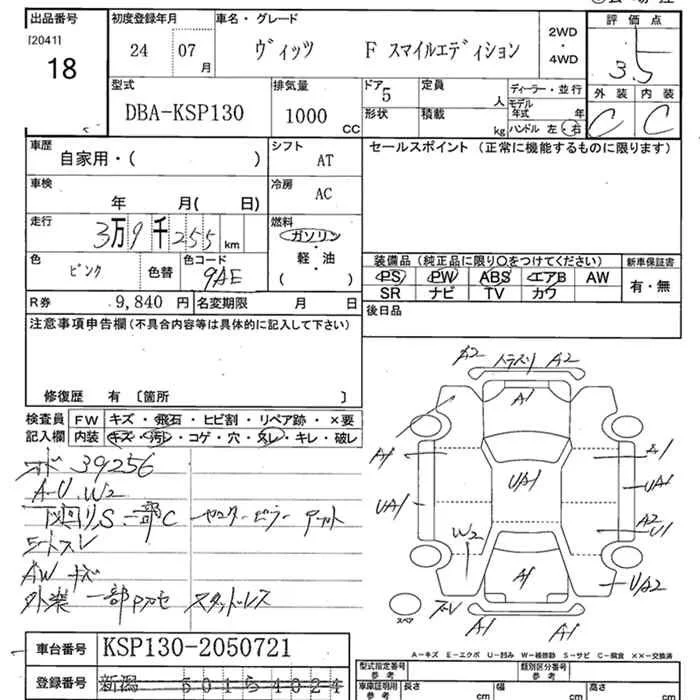 出品番号 初度登録年月 車名・グレード 評価点
[2041] 24 07 月 ヴィッツ F スマイルエディション 2WD・4WD 5
18 3.5
型式 排気量 ドア 5 定員 人 ディーラー・並行 外装 内装
DBA-KSP130 1000 CC 形状 積載 kg モデル年式 年 C C
ハンドル 左・右
車歴 自家用・( ) シフト AT セールスポイント(正常に機能するものに限ります)
車検 年 月( 日) 冷房 AC
走行 3万9千255 km 燃料 ガソリン
軽・油
( )
色 ピンク 色替 色コード 9AE
装備品(純正品に限り○をつけてください) 新車保証書
PS PW ABS エアB AW 有・無
SR ナビ TV カワ
R券 9,840 円 名変期限 月 日 後日品
注意事項申告欄(不具合内容等は具体的に記入して下さい)
修復歴 有 [箇所 ]
検査員 FW キズ・飛石・ヒビ割・リペア跡・×要
記入欄 内装 キズ・汚レ・コゲ・穴・スレ・キレ・破レ
39256
A-U W2
下廻りS 一部C
シートスレ
AW キズ
外装 一部 スタッドレス
A2 A2
A1
A1 A1
UA1 UA1 UA1
A2
U1
W2
A1 UA2
スペア スレ A1 A1
A-キズ E-エクボ U-凹み W-補修跡 S-サビ C-腐食 ××-交換済
車台番号 KSP130-2050721
登録番号 新潟 501 5 4024
型式指定番号 参考 類別区分番号 参考
車庫証明用 参考 長さ cm 幅 cm 高さ cm